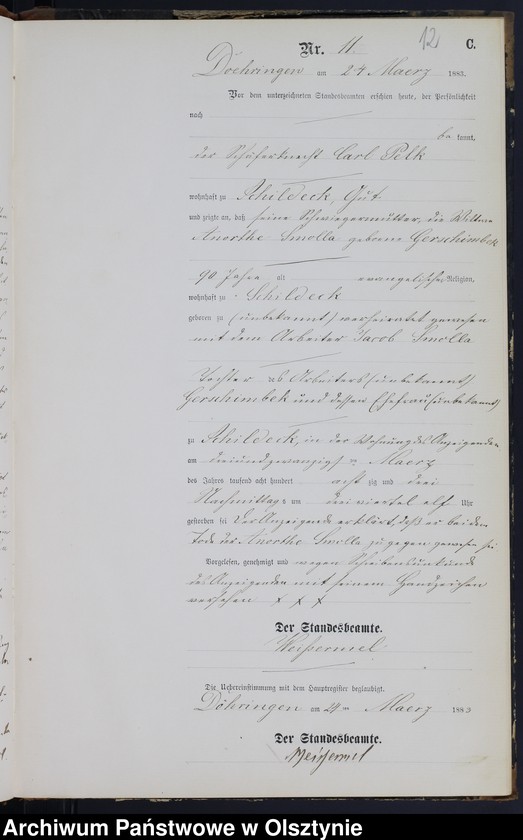 12
Nr. 11.
C.
Doehringen am 24 Maerz 1883.
Vor dem unterzeichneten Standesbeamten erschien heute, der Persönlichkeit
nach
be kannt,
der Schäferknecht Carl Pelk
wohnhaft zu Schildeck, Gut
und zeigte an, daß seine Schwiegermutter, die Wittwe
Anorthe Smolla geborne Gerschimbek
90 Jahre alt evangelischer Religion,
wohnhaft zu Schildeck
geboren zu (unbekannt) verheiratet gewesen
mit dem Arbeiter Jacob Smolla
Tochter des Arbeiters (unbekannt)
Gerschimbek und dessen Ehefrau (unbekannt)
zu Schildeck, in der Wohnung des Anzeigenden
am dreiundzwanzigsten Maerz
des Jahres tausend acht hundert acht zig und drei
Nachmittags um dreiviertel elf Uhr
gestorben sei Der Anzeigende erklärt, daß er bei dem
Tode der Anorthe Smolla zugegen gewesen sei
Vorgelesen, genehmigt und wegen Schreibensunkunde
des Anzeigenden mit seinem Handzeichen
versehen x x x
Der Standesbeamte.
Weissermel
Die Uebereinstimmung mit dem Hauptregister beglaubigt.
Döhringen am 24ten Maerz 1883
Der Standesbeamte.
Weissermel
Archiwum Państwowe w Olsztynie